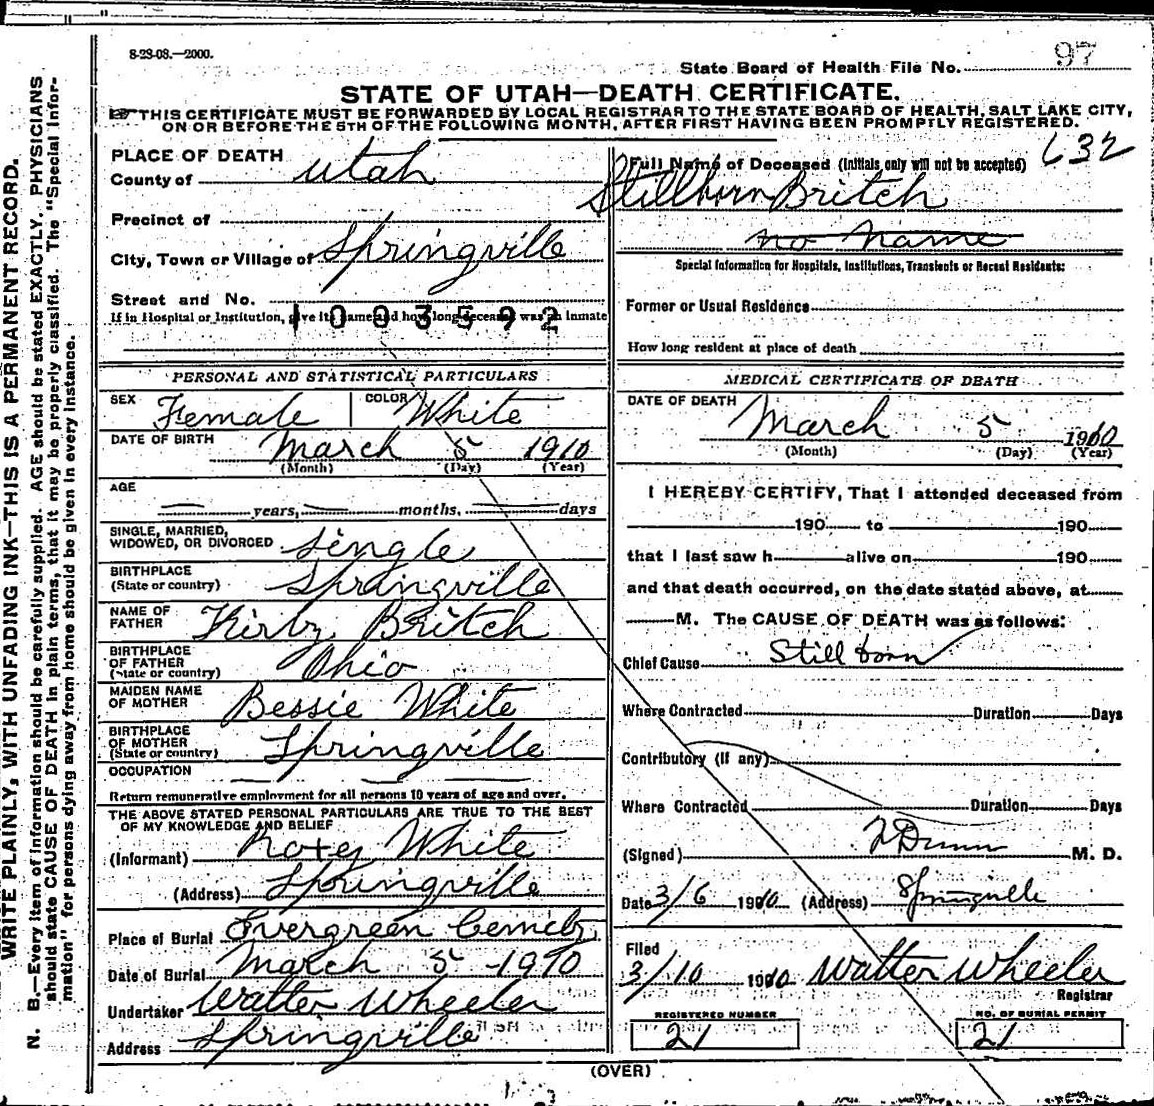 8-23-08.—2000.
97
State Board of Health File No.
STATE OF UTAH—DEATH CERTIFICATE.
THIS CERTIFICATE MUST BE FORWARDED BY LOCAL REGISTRAR TO THE STATE BOARD OF HEALTH, SALT LAKE CITY,
ON OR BEFORE THE 5TH OF THE FOLLOWING MONTH, AFTER FIRST HAVING BEEN PROMPTLY REGISTERED.
WRITE PLAINLY, WITH UNFADING INK—THIS IS A PERMANENT RECORD.
N. B.—Every item of information should be carefully supplied. AGE should be stated EXACTLY. PHYSICIANS
should state CAUSE OF DEATH in plain terms, that it may be properly classified. The "Special Infor-
mation" for persons dying away from home should be given in every instance.
PLACE OF DEATH
County of Utah
Precinct of
City, Town or Village of Springville
Street and No.
If in Hospital or Institution, give its name and how long deceased was an inmate
1003592
PERSONAL AND STATISTICAL PARTICULARS
SEX Female COLOR White
DATE OF BIRTH March 5 1910
(Month) (Day) (Year)
AGE
years, months, days
SINGLE, MARRIED,
WIDOWED, OR DIVORCED single
BIRTHPLACE
(State or country) Springville
NAME OF
FATHER Kirby Britch
BIRTHPLACE
OF FATHER
(State or country) Ohio
MAIDEN NAME
OF MOTHER Bessie White
BIRTHPLACE
OF MOTHER
(State or country) Springville
OCCUPATION
Return remunerative employment for all persons 10 years of age and over.
THE ABOVE STATED PERSONAL PARTICULARS ARE TRUE TO THE BEST
OF MY KNOWLEDGE AND BELIEF
(Informant) White
(Address) Springville
Place of Burial Evergreen
Date of Burial March 5 - 1910
Undertaker Walter Wheeler
Address Springville
632
Full Name of Deceased (Initials only will not be accepted)
Stillborn Britch
no name
Special Information for Hospitals, Institutions, Transients or Recent Residents:
Former or Usual Residence
How long resident at place of death
MEDICAL CERTIFICATE OF DEATH
DATE OF DEATH
March 5 1910
(Month) (Day) (Year)
I HEREBY CERTIFY, That I attended deceased from
190 to 190
that I last saw h alive on 190
and that death occurred, on the date stated above, at
M. The CAUSE OF DEATH was as follows:
Chief Cause Still born
Where Contracted Duration Days
Contributory (if any)
Where Contracted Duration Days
(Signed) Dunn M. D.
Date 3/6 1910 (Address) Springville
Filed
3/10 1910 Walter Wheeler
Registrar
REGISTERED NUMBER
21
NO. OF BURIAL PERMIT
21
(OVER)